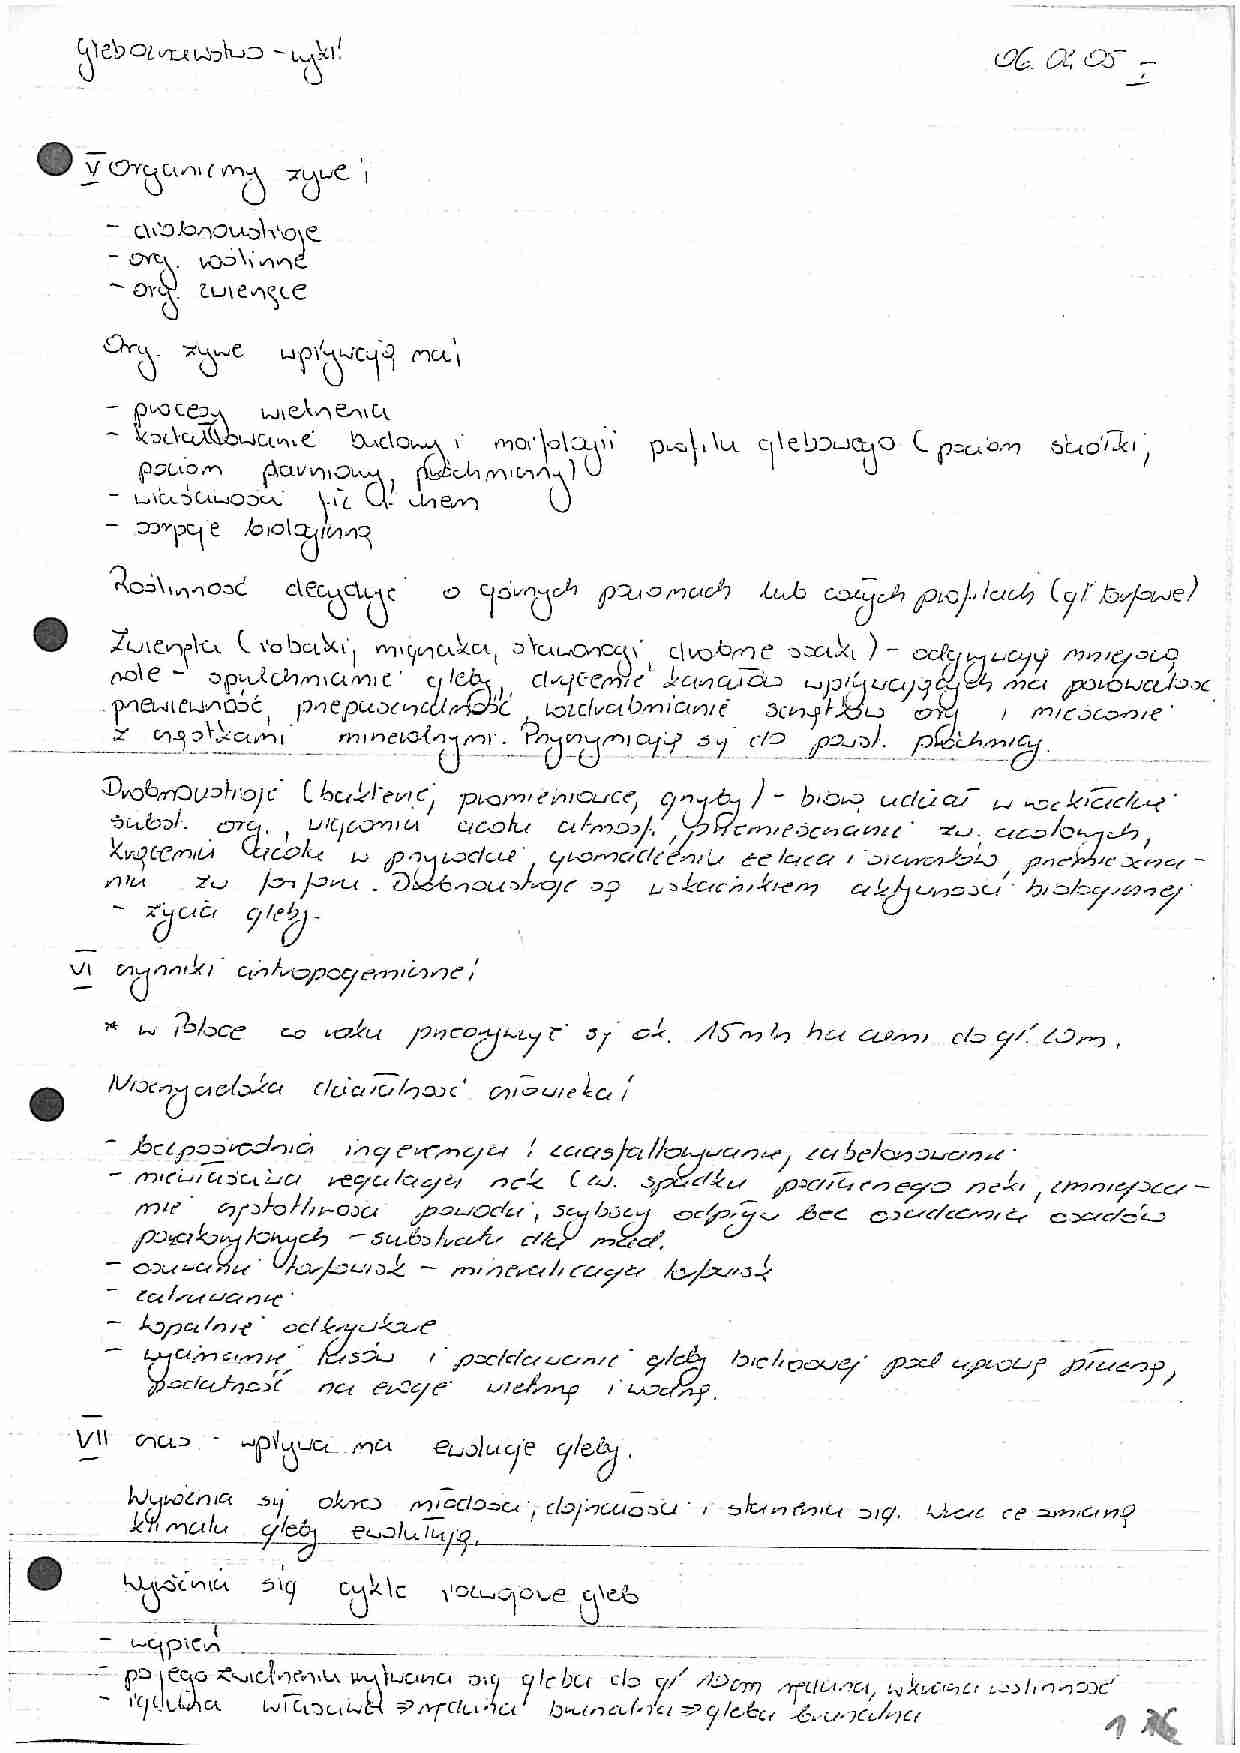 Gleboznawstwo - wykł. 06.
V Organizmy żywe:
- drobnoustroje
- org. roślinne
- org. zwierzęce
Org. żywe wpływają na:
- procesy wietrzenia
- kształtowanie budowy i morfologii profilu glebowego (poziom ściółki,
poziom darniowy, próchniczny)
- właściwości fiz. i chem
- sorpcje biologiczną
Roślinność decyduje o górnych poziomach lub całych profilach (gl. torfowe)
Zwierzęta (robaki, mięczaki, stawonogi, drobne ssaki) - odgrywają mniejszą
role - spulchnianie gleby, drążenie kanałów wpływających na porowatość
przewiewność, przepuszczalność, rozdrabnianie szczątków org i mieszanie
z cząstkami mineralnymi. Przyczyniają się do powst. próchnicy.
Drobnoustroje (bakterie, promieniowce, grzyby) - biorą udział w rozkładzie
subst. org., wiązaniu azotu atmosf., zw. azotowych,
krążeniu azotu w przyrodzie, gromadzeniu żelaza i siarczków, przemieszcza-
niu zw fosforu. Drobnoustroje są wskaźnikiem aktywności biologicznej
- życia gleby.
VI czynniki antropogeniczne:
* w Polsce co roku przeorywuje się ok. 15 mln ha ziemi do gł.
Niszczycielska działalność człowieka:
- bezpośrednia ingerencja: zaasfaltowywanie, zabetonowanie
- niewłaściwa regulacja rzek (zw. spadku podłużnego rzeki, zmniejsza-
nie częstotliwości powodzi, szybszy odpływ bez osadzenia osadów
- substratu dla mad.
- osuszanie torfowisk - mineralizacja torfowisk
- zatruwanie
- kopalnie odkrywkowe
- wycinanie lasów i poddawanie gleby bielicowej pod uprawę płużną,
podatność na erozje wietrzną i wodną.
VII czas - wpływa na ewolucje gleby.
Wyróżnia się okres młodości, dojrzałości i starzenia się. Wraz ze zmianą
klimatu gleby ewoluują.
Wyróżnia się cykle rozwojowe gleb
- wapień
- po jego zwietrzeniu wytwarza się gleba do gł 10cm rędzina, wkracza roślinność
- rędzina właściwa => rędzina brunatna => gleba brunatna
1